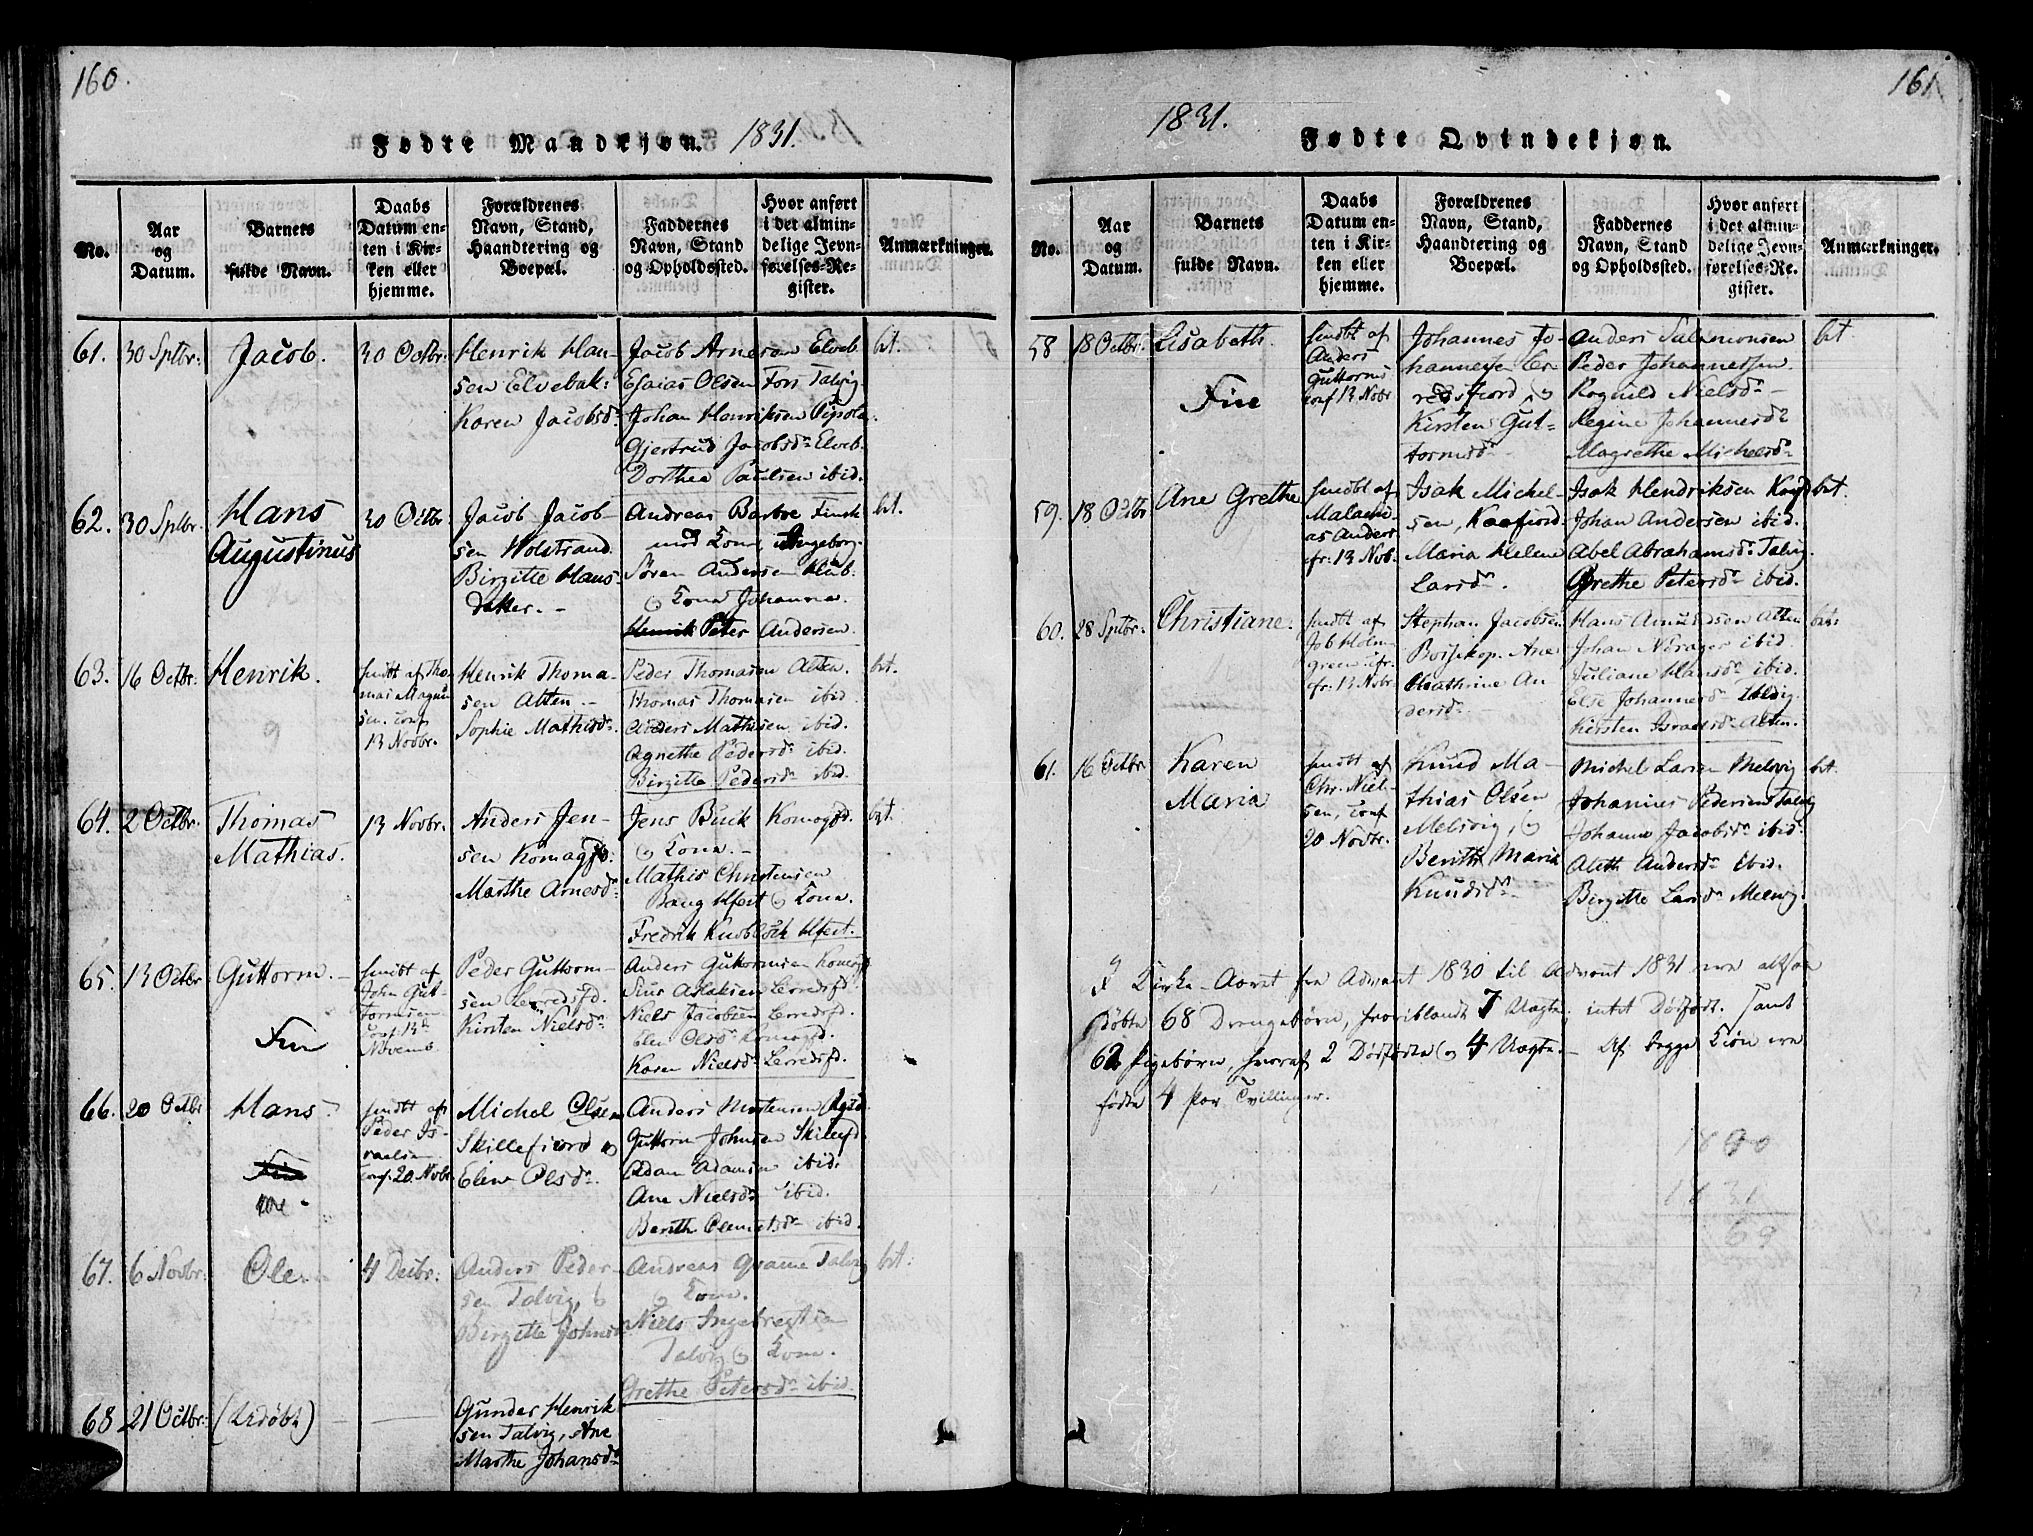 160.
Fødte Mandkjøn. 1831.
No.
Aar
og
Datum.
Barnets
fulde Navn.
Daabs
Datum en-
ten i Kir-
ken eller
hjemme.
Forældrenes
Navn, Stand,
Haandtering og
Boepæl.
Faddernes
Navn, Stand
og Opholdssted.
Hvor anført
i det almin-
delige Jevn-
førelses-Re-
gister.
Anmærkninger.
61. 30 Sptbr:
Jacob.
30 Octbr:
Henrik Han-
sen Elvebak:
Karen Jacobsdr
Jacob Arnesen Elveb.
Esaias Olsen Fors Talvig
Johan Henriksen
Gjertrud Jacobsdr Elveb.
Dorthea Paulsen ibid.
bt.
62. 30 Sptbr:
Hans
Augustinus
30 Octbr:
Jacob Jacob-
sen Holstrand.
Birgitte Hans-
datter. -
Andreas
med Kone, Ingeborg.
Søren Andersen
og Kone Johanna.
Henrik Peter Andersen.
bt.
63. 16 Octbr:
Henrik.
hmdbt af Tho-
mas Magnu
sen. conf
13 Novbr.
Henrik Thoma-
sen Alten. -
Sophie Mathisdr
Peder Thomasen Alten.
Thomas Thomasen ibid.
Anders Mathisen ibid.
Agnethe Pedersdr ibid.
Birgitte Pedersdr ibid.
bt.
64. 2 Octbr:
Thomas
Mathias.
13 Novbr:
Anders Jen-
sen Komagfd:
Marthe Arnesdr
Jens Buck Komagfd.
og Kone. -
Mathis Christensen
Bang Hfest og Kone.
Fredrik Knobloch Hfest.
bt.
65. 13 Octbr
Guttorm. -
Fin
hmdbt af
John Gut-
tormsen
conf. 13de
Novemb.
Peder Guttorm-
sen Lerredsfd.
Kirsten Nielsdr
Anders Guttormsen Komagf
Aslaksen Lerredsfd.
Niels Jacobsen Lerredsfd.
Elen Olsdr Komagfd.
Karen Nielsdr Lerredsfd.
66. 20 Octbr
Hans.
Fin
hmdbt af
Peder Is-
raelsen
conf. 20. Novbr.
Michel Olsen
Skillefiord og
Elen Olsdr.
Anders Mortensen
Guttorm Johnsen Skillefd
Adam Adamsen ibid.
Ane Nielsdr ibid.
Berith Clemetsdr ibid.
67. 6 Novbr:
Ole.
4 Decbr:
Anders Peder-
sen Talvig, og
Birgitte Johnsd
Andreas Grame Talvig
og Kone.
Niels Ingebregtsen
Talvig og Kone.
Grethe Petersdr ibid
bt.
68 21 Octbr:
(Udøbt)
Gunder Henrik
sen Talvig, Ane
Marthe Johansdr
161.
1831. Fødte Qvindekjøn.
No.
Aar
og
Datum.
Barnets
fulde Navn.
Daabs
Datum en-
ten i Kir-
ken eller
hjemme.
Forældrenes
Navn, Stand,
Haandtering og
Boepæl.
Faddernes
Navn, Stand
og Opholdssted.
Hvor anført
i det almin-
delige Jevn-
førelses-Re-
gister.
Anmærkninger.
58 18 Octbr:
Lisabeth.
Fin
hmdbt af
Anders
Guttorms
conf 13 Novbr
Johannes Jo-
hannesen Ler-
redsfiord, og
Kirsten Gut-
tormsdr
Anders Salamonsen
Peder Johannesen
Rognild Nielsdr
Regine Johannesdr
Magrethe Michelsdr
bt.
59. 18 Octbr
Ane Grethe
hmdbt af
Malachi-
as Anders
fr. 13 Nob.
Isak Michel-
sen, Kaafiord.
Maria Helene
Larsdr.
Isak Hendriksen Kaafd
Johan Andersen ibid.
Abel Abrahamsdr Talvig.
Grethe Petersdr ibid.
bt.
60. 28 Sptbr:
Christiane.
hmdbt af
Job Holm-
green
fr. 13 Nobr
Stephan Jacobsen
Bossekop. Ane
Cathrine An
dersdr
Hans Amundsen Alten
Johan Nirager ibid.
Juliane Hansdr ibid.
Else Johannesdr Talvig.
Kirsten Israelsdr Alten.
bt.
61. 16 Octbr
Karen
Maria
hmdbt af
Chr. Niel-
sen, conf
20 Novbr.
Knud Ma-
thias Olsen
Melsvig, og
Berith Marie
Knudsdr
Michel Larsen Melsvig
Johannes Pedersen Talvig
Johanne Jacobsdr ibid.
Aleth Andersdr ibid.
Birgitte Larsdr Melsvig.
bt.
I Kirke-Aaret fra Advent 1830 til Advent 1831 ere altsaa
døbte 68 Drengebørn, hvoriblandt 7 Uægte, intet Dødfødt. Samt
62 Pigebørn, hvoraf 2 Dødfødte og 4 Uægte. - Af begge Kiøn ere
fødte 4 Par Tvillinger.
1831
69